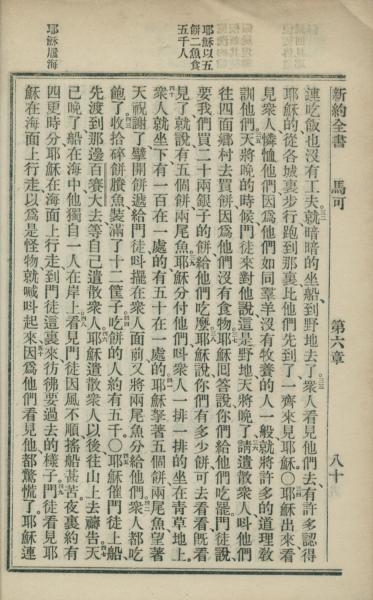 新約全書　馬可　第六章　八十
耶穌以五
餅二魚食
五千人
耶穌履海
連吃飯也沒有工夫就暗暗的坐船到野地去了衆人看見他們去有許多認得
耶穌的從各城裏步行跑到那裏比他們先到了一齊來見耶穌〇耶穌出來看
見衆人憐恤他們因爲他們如同羣羊沒有牧養的人一般就將許多的道理敎
訓他們天將晚的時候門徒來對他說這是野地天將晚了請遣散衆人呌他們
往四面鄉村去買餅因爲他們沒有食物耶穌囘答說你們給他們吃罷門徒說
要我們買二十兩銀子的餅給他們吃麼耶穌說你們有多少餅可去看看旣看
見了就說有五個餅兩尾魚耶穌分付他們呌衆人一排一排的坐在靑草地上
衆人就坐下有一百在一處的有五十在一處的耶穌拏著五個餅兩尾魚望著
天祝謝了擘開餅遞給門徒呌擺在衆人面前又將兩尾魚分給他們衆人都吃
飽了收拾碎餅賸魚裝滿了十二筐子吃餅的人約有五千〇耶穌催門徒上船
先渡到那邊百賽大去等自己遣散衆人耶穌遣散衆人以後往山上去禱告天
已晚了船在海中他獨自一人在岸上看見門徒因風不順搖船甚苦夜裏約有
四更時分耶穌在海面上行走到門徒這裏來彷彿要過去的樣子門徒看見耶
穌在海面上行走以爲是怪物就喊呌起來因爲他們看見他都驚慌了耶穌連